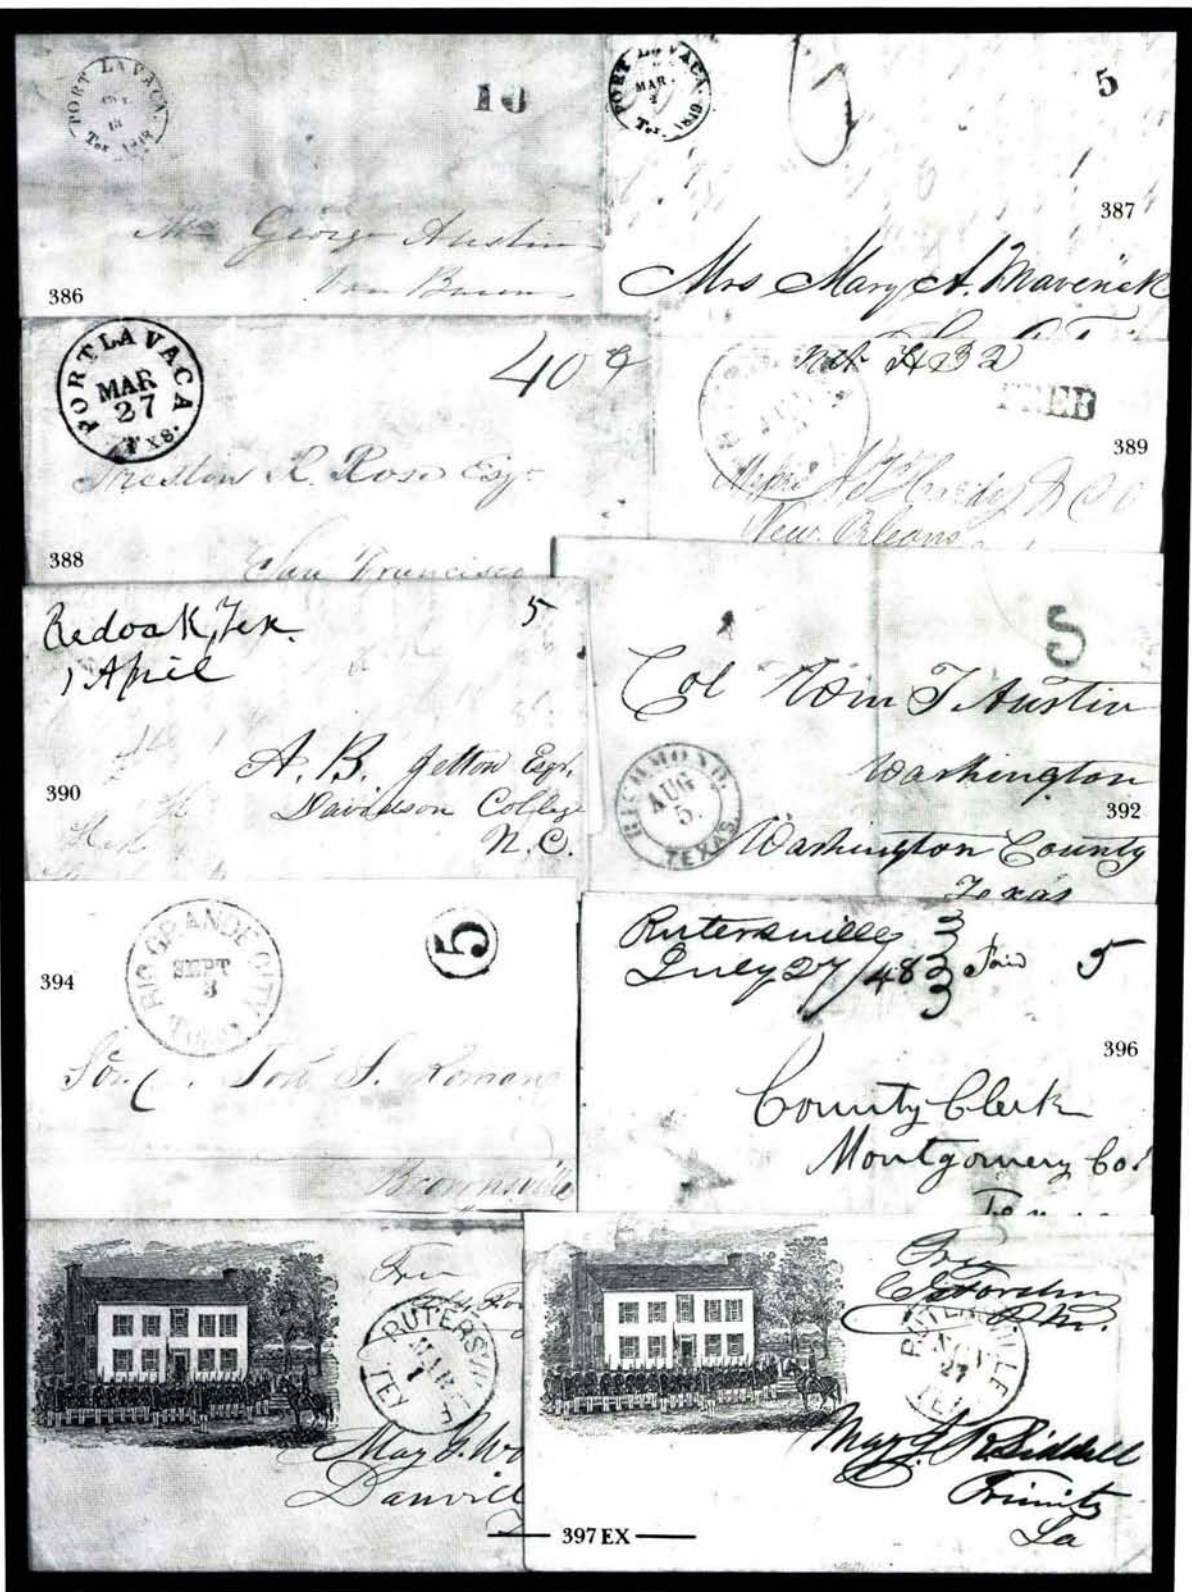 PORT LA VACA.
13
Tex
10
George Austin
Van Buren
386
PORT LA VACA.
MAR.
2
Tex.
5
387
Mrs Mary A. Maverick
PORT LA VACA
MAR
27
Txs.
40
Preston R. Rose Esqr
San Francisco
388
FREE
389
New Orleans
Redoak, Tex.
1 April
5
A. B. Jetton Esqr.
Davidson College
N.C.
390
5
Col Wm T Austin
RICHMOND.
AUG
5.
TEXAS.
Washington
392
Washington County
Texas
RIO GRANDE CITY
SEPT
3
5
394
Brownsville
Rutersville
July 27/48
Paid
5
396
County Clerk
Montgomery Co.
Texas
Free
RUTERSVILLE
MAR
1
TEX
Danvill
Free
P.M.
RUTERSVILLE
NOV
27
TEX
Biddell
Trinity
La
397 EX